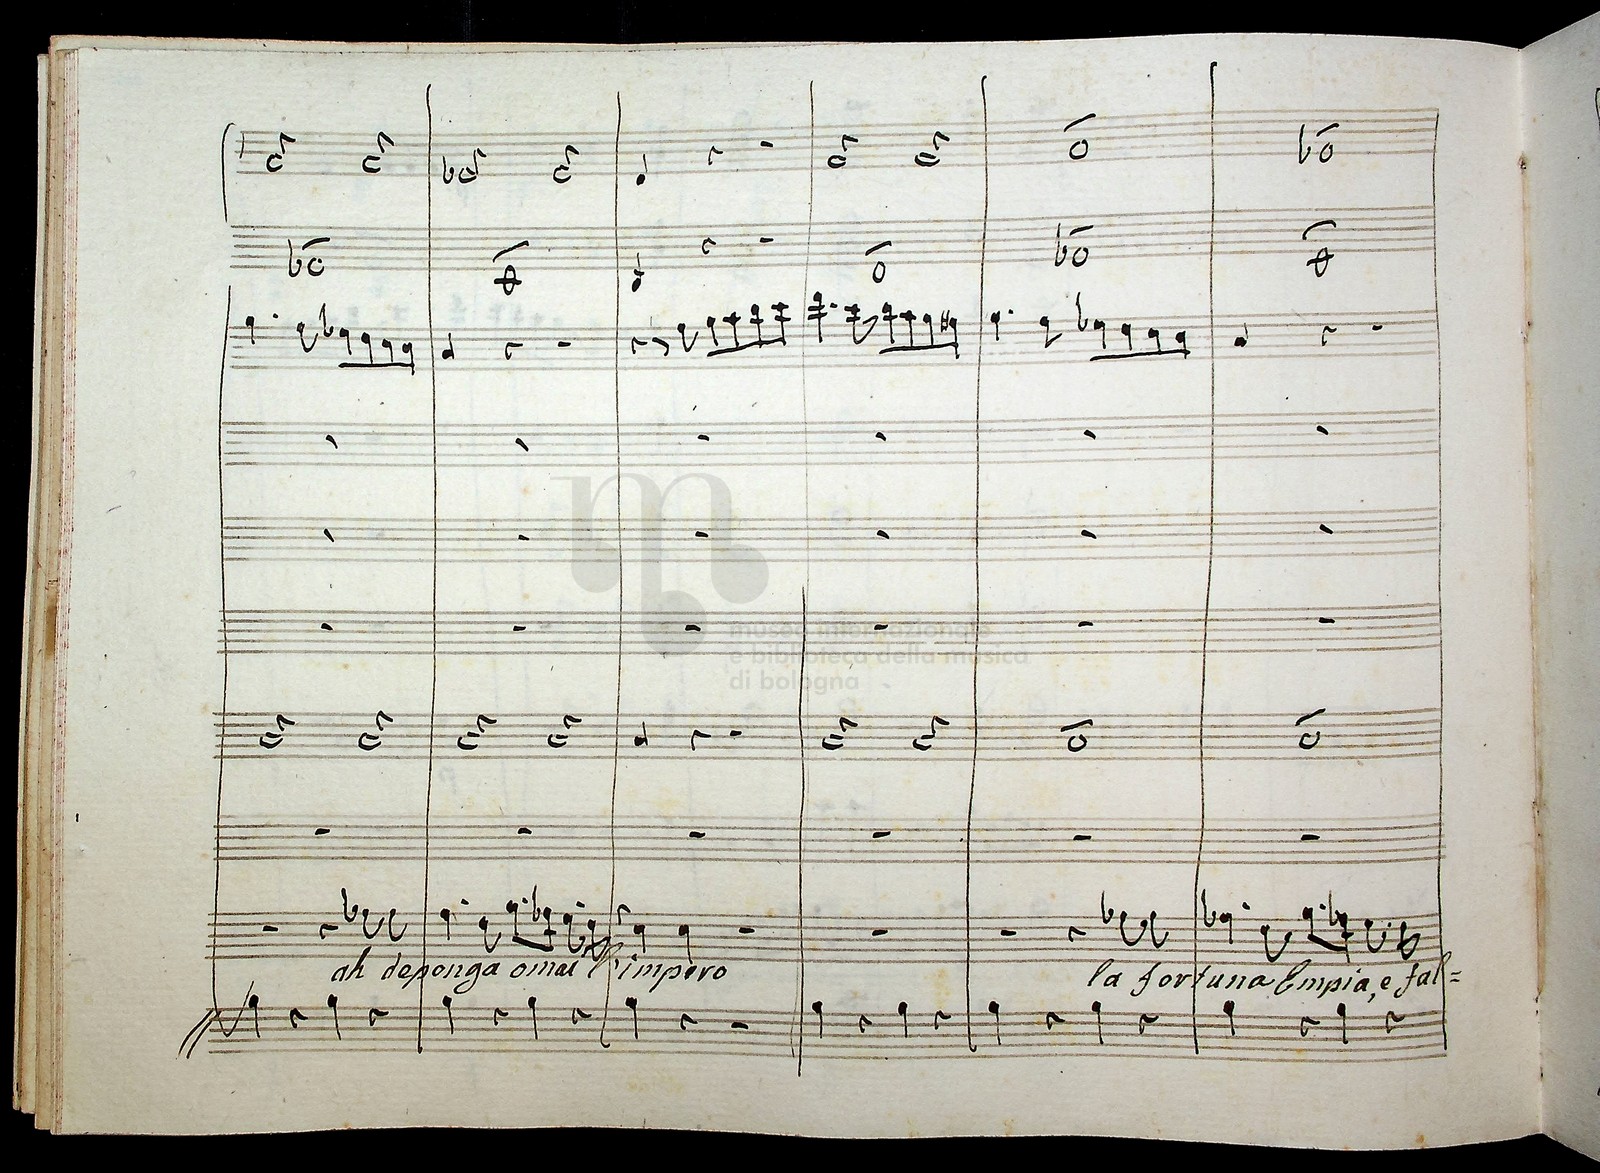 museo internazionale
e biblioteca della musica
di bologna
ah deponga omai l'impero
la fortuna Empia, e fal=